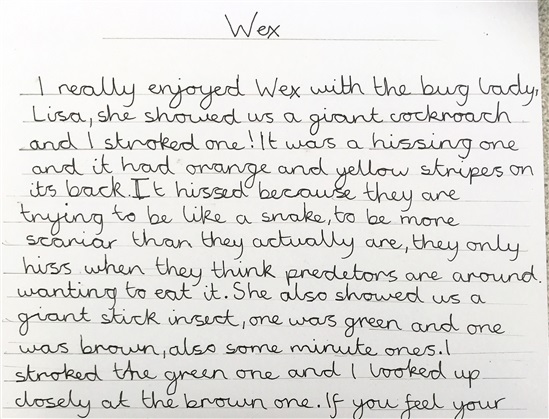 Wex
I really enjoyed Wex with the bug lady,
Lisa, she showed us a giant cockroach
and I stroked one! It was a hissing one
and it had orange and yellow stripes on
its back. It hissed because they are
trying to be like a snake, to be more
scariar than they actually are, they only
hiss when they think predetors are around.
wanting to eat it. She also showed us a
giant stick insect, one was green and one
was brown, also some minute ones. I
stroked the green one and I looked up
closely at the brown one. If you feel your